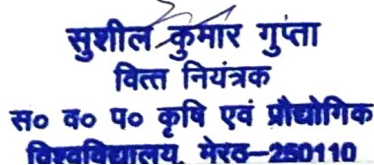 सुशील कुमार गुप्ता
वित्त नियंत्रक
स० व० प० कृषि एवं प्रौद्योगिक
विश्वविद्यालय, मेरठ–250110